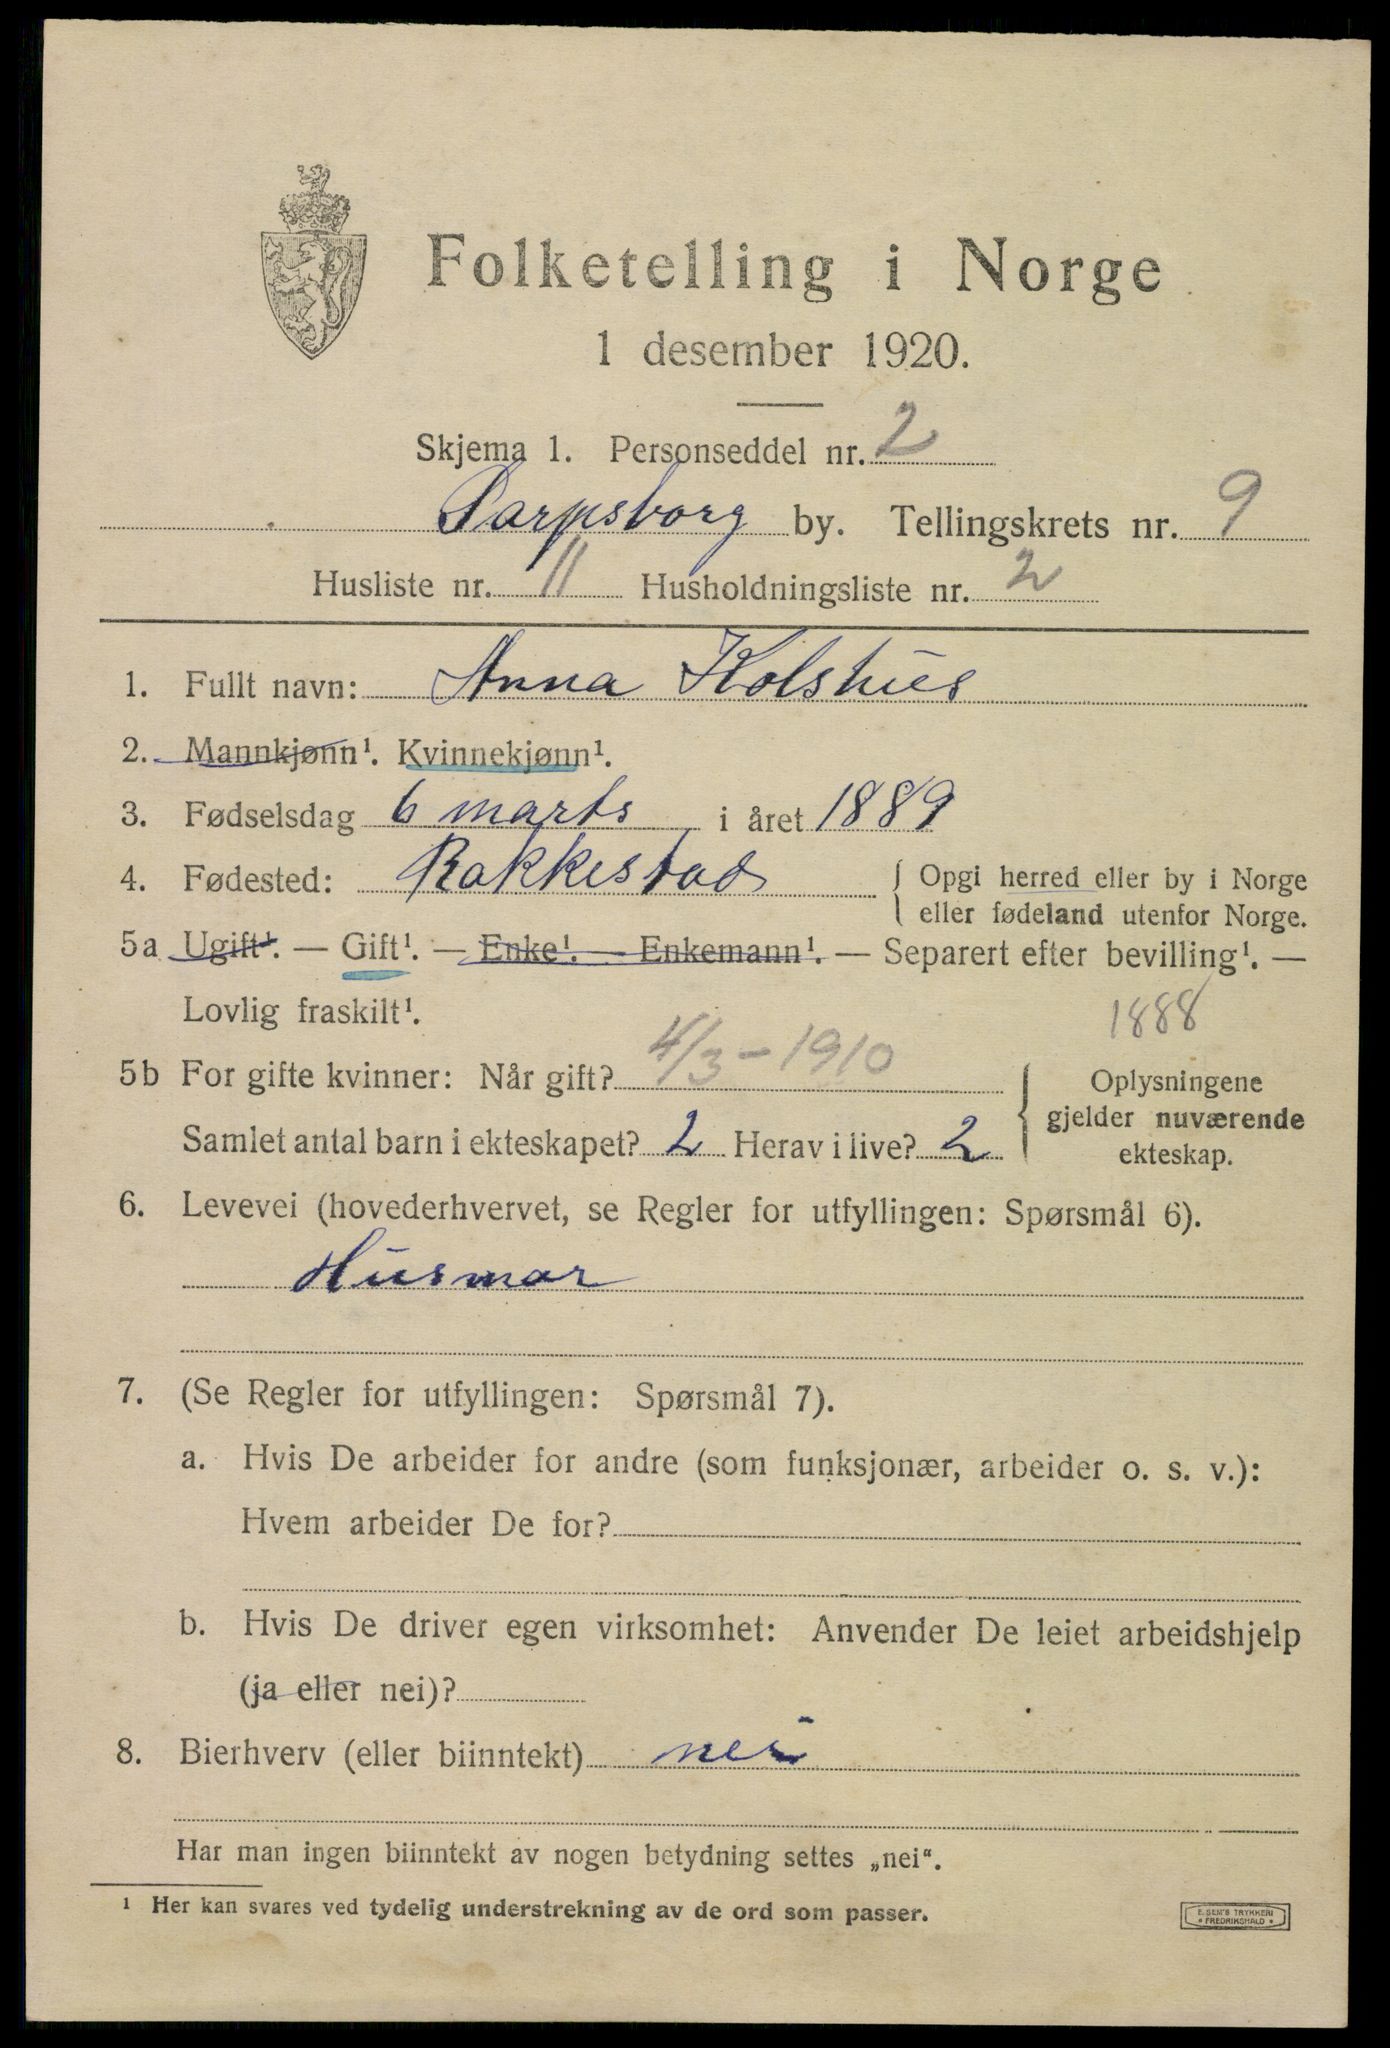 Folketelling i Norge
1 desember 1920.
Skjema 1. Personseddel nr. 2
Sarpsborg by. Tellingskrets nr. 9
Husliste nr. 11 Husholdningsliste nr. 2
1. Fullt navn: Anna Kolshus
2. Mannkjønn¹. Kvinnekjønn¹.
3. Fødselsdag 6 marts i året 1889
4. Fødested: Rakkestad { Opgi herred eller by i Norge
eller fødeland utenfor Norge.
5a Ugift¹. — Gift¹. — Enke¹. — Enkemann¹. — Separert efter bevilling¹. —
Lovlig fraskilt¹.
1888
5b For gifte kvinner: Når gift? 4/3 - 1910
Samlet antal barn i ekteskapet? 2 Herav i live? 2
{ Oplysningene
gjelder nuværende
ekteskap.
6. Levevei (hovederhvervet, se Regler for utfyllingen: Spørsmål 6).
Husmor
7. (Se Regler for utfyllingen: Spørsmål 7).
a. Hvis De arbeider for andre (som funksjonær, arbeider o. s. v.):
Hvem arbeider De for?
b. Hvis De driver egen virksomhet: Anvender De leiet arbeidshjelp
(ja eller nei)?
8. Bierhverv (eller biinntekt) nei
Har man ingen biinntekt av nogen betydning settes „nei“.
¹ Her kan svares ved tydelig understrekning av de ord som passer.
E. SEM'S TRYKKERI
* FREDRIKSHALD *